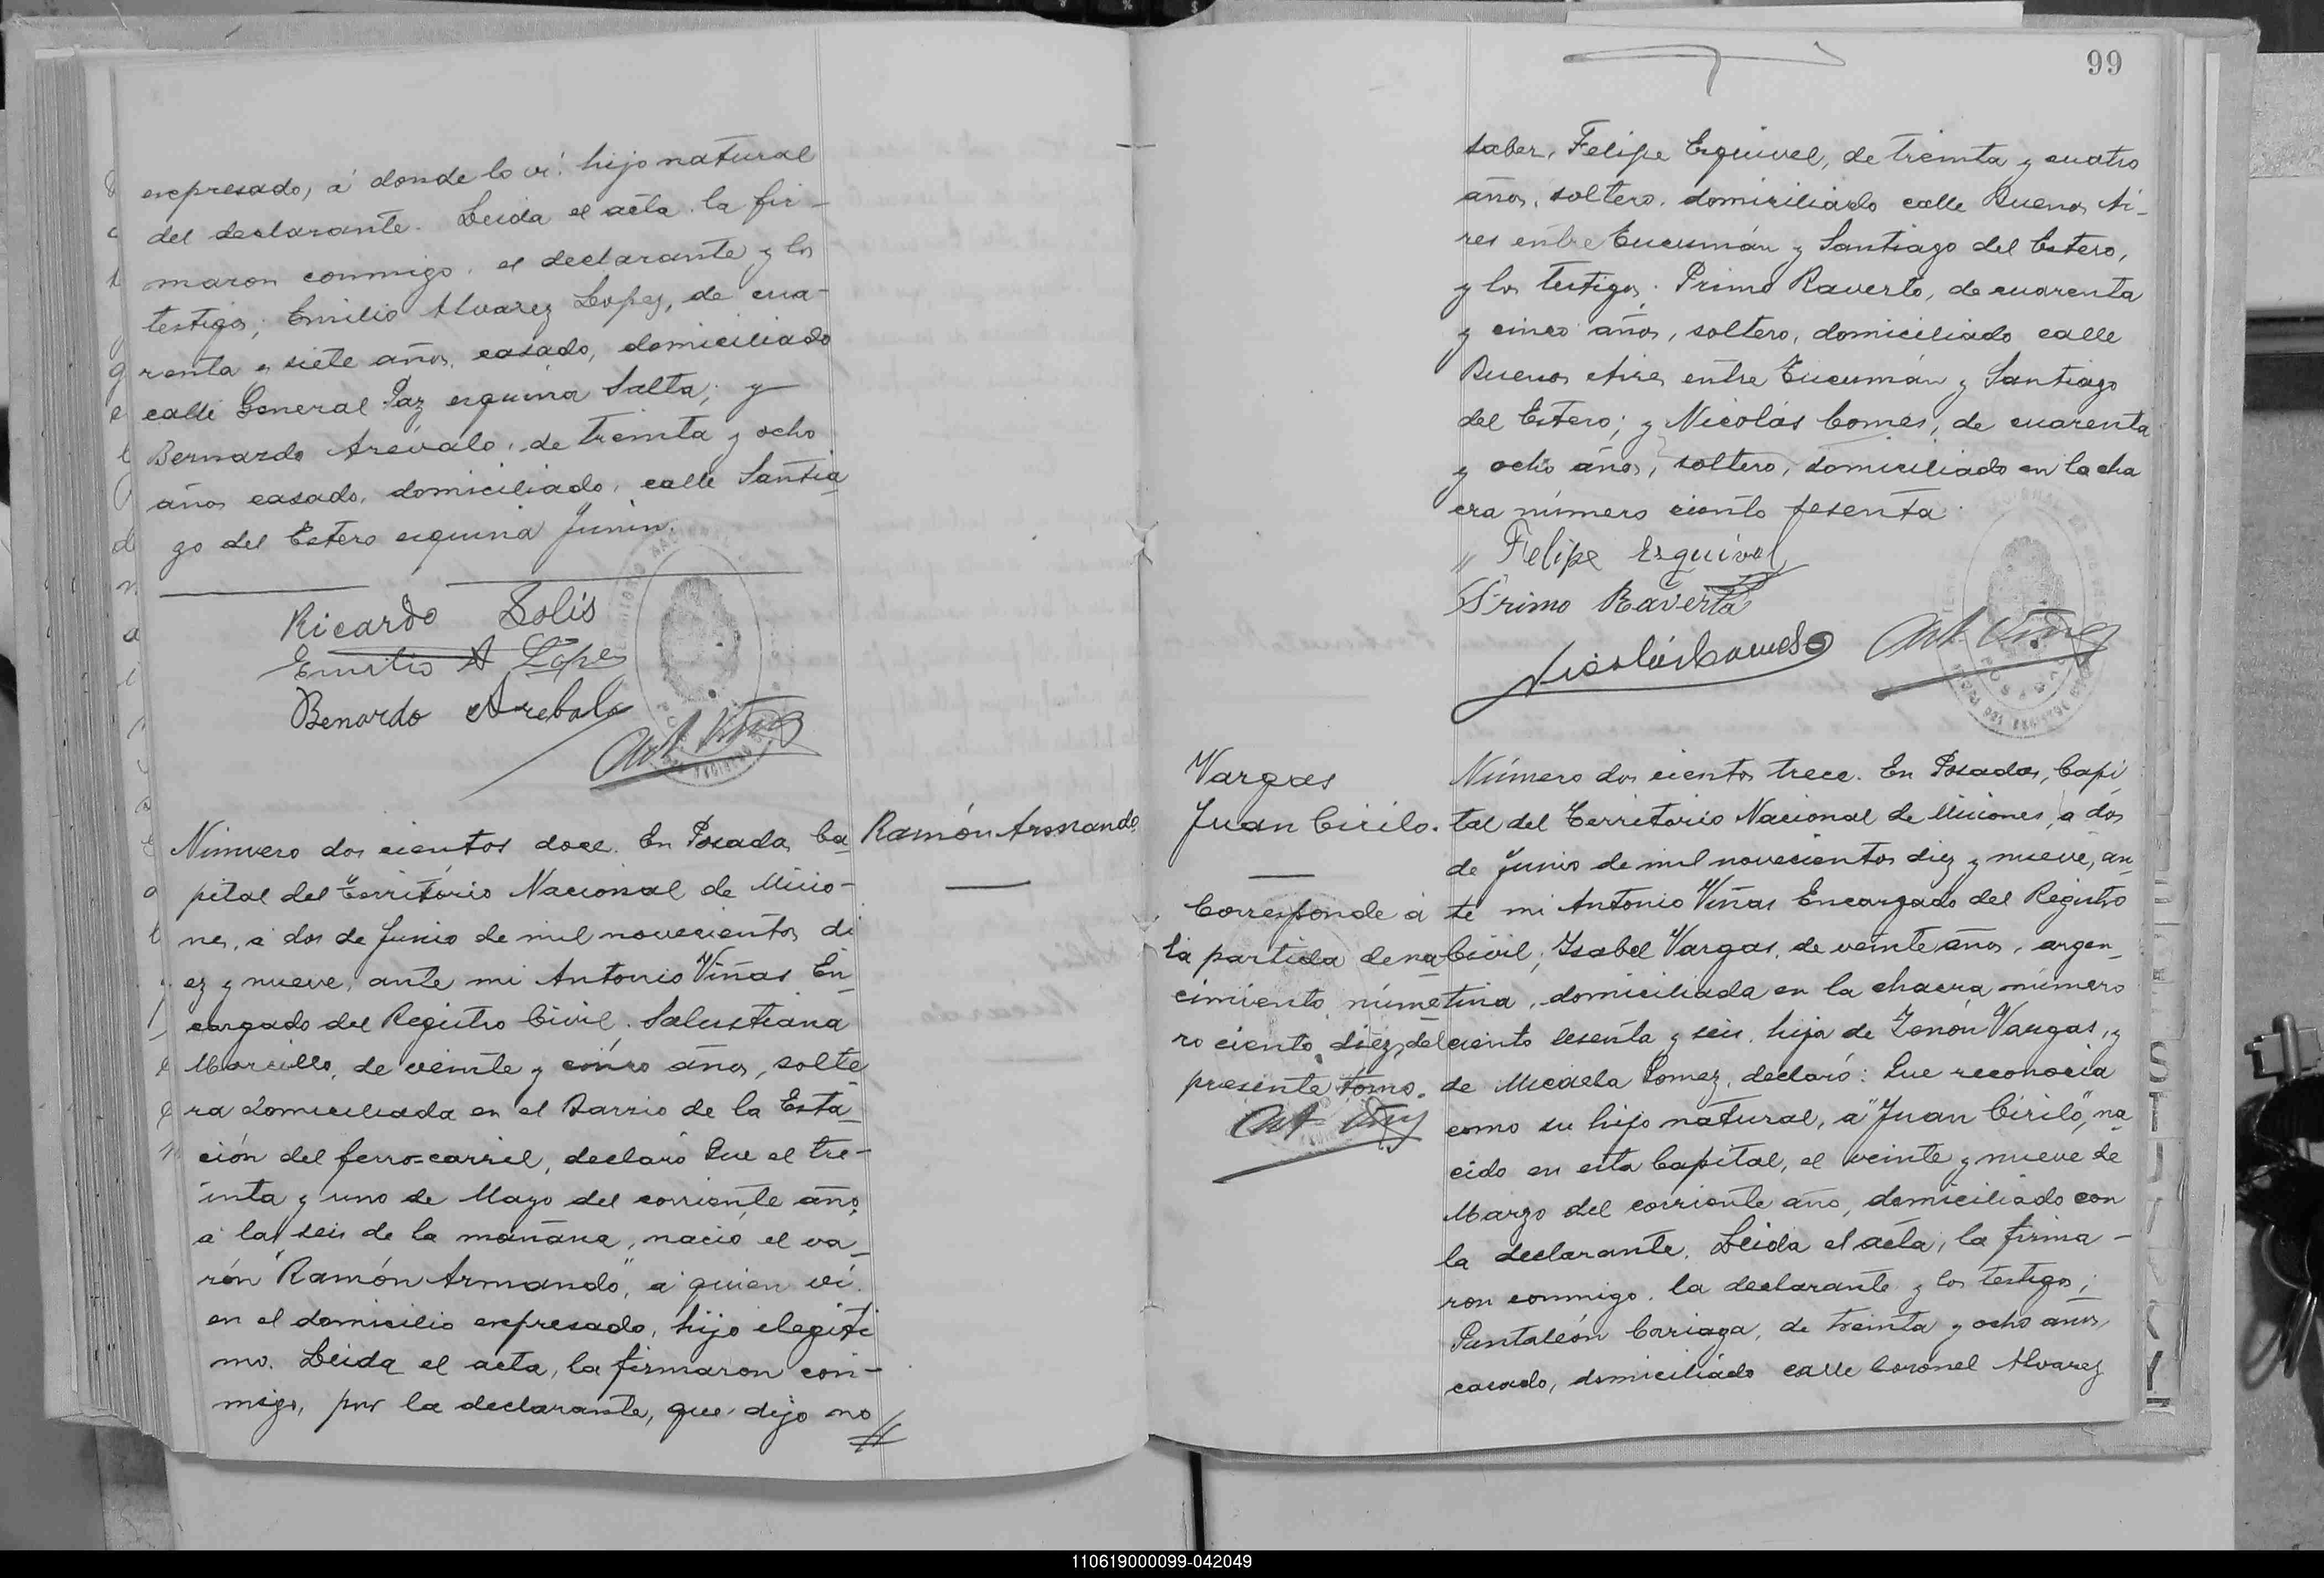 expresado, á donde lo ví: hijo natural
del declarante. Leida el acta la fir-
maron conmigo, el declarante y los
testigos; Emilio Alvarez Lopez, de cua-
renta y siete años, casado, domiciliado
calle General Paz esquina Salta; y
Bernardo Arévalo, de treinta y ocho
años casado, domiciliado, calle Santia
go del Estero esquina Junin.
Ricardo Solis
Emilio A Lopez
Benardo Arebalo
Ant. Viñas
Ramón Armando
Número dos cientos doce. En Posadas, Ca
pital del Territorio Nacional de Misio-
nes, á dos de Junio de mil novecientos di
ez y nueve, ante mi Antonio Viñas En
cargado del Registro Civil, Salustiana
de veinte y cinco años, solte
ra domiciliada en el Barrio de la Esta
ción del ferro=carril, declaró Que el tre-
inta y uno de Mayo del corriente año,
á las seis de la mañana, nació el va-
rón "Ramón Armando", á quien ví
en el domicilio expresado, hijo ilegiti
mo. Leida el acta, la firmaron con-
migo, por la declarante, que dijo no
99
saber, Felipe Esquivel, de treinta y cuatro
años, soltero, domiciliado calle Buenos Ai-
res entre Tucumán y Santiago del Estero,
y los testigos: Primo Raverto, de cuarenta
y cinco años, soltero, domiciliado calle
Buenos Aires entre Tucumán y Santiago
del Estero; y Nicolás Comes, de cuarenta
y ocho años, soltero, domiciliado en la cha
cra número ciento sesenta.
Felipe Esquivel
Primo Raverta
Nicolás Comes
Ant. Viñas
Vargas
Juan Cirilo.
Corresponde á
la partida de na
cimiento, núme
ro ciento diez, del
presente tomo.
Ant Viñas
Número dos cientos trece. En Posadas, Capi
tal del Territorio Nacional de Misiones, a dos
de Junio de mil novecientos diez y nueve, an
te mi Antonio Viñas Encargado del Registro
Civil; Isabel Vargas, de veinte años, argen-
tina, domiciliada en la chacra número
ciento sesenta y seis, hija de Zenón Vargas, y
de Micaela Gomez, declaró: Que reconocia
como su hijo natural, a "Juan Cirilo", na
cido en esta Capital, el veinte y nueve de
Marzo del corriente año, domiciliado con
la declarante. Leida el acta, la firma-
ron conmigo, la declarante y los testigos;
Pantaleón Carriaga, de treinta y ocho años,
casado, domiciliado calle Coronel Alvarez
110619000099-042049